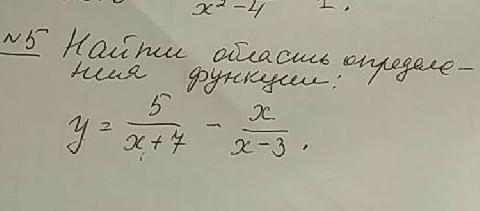 x²-4 1.
№5 Найти область определе-
ния функции:
y = 5/(x+7) - x/(x-3).